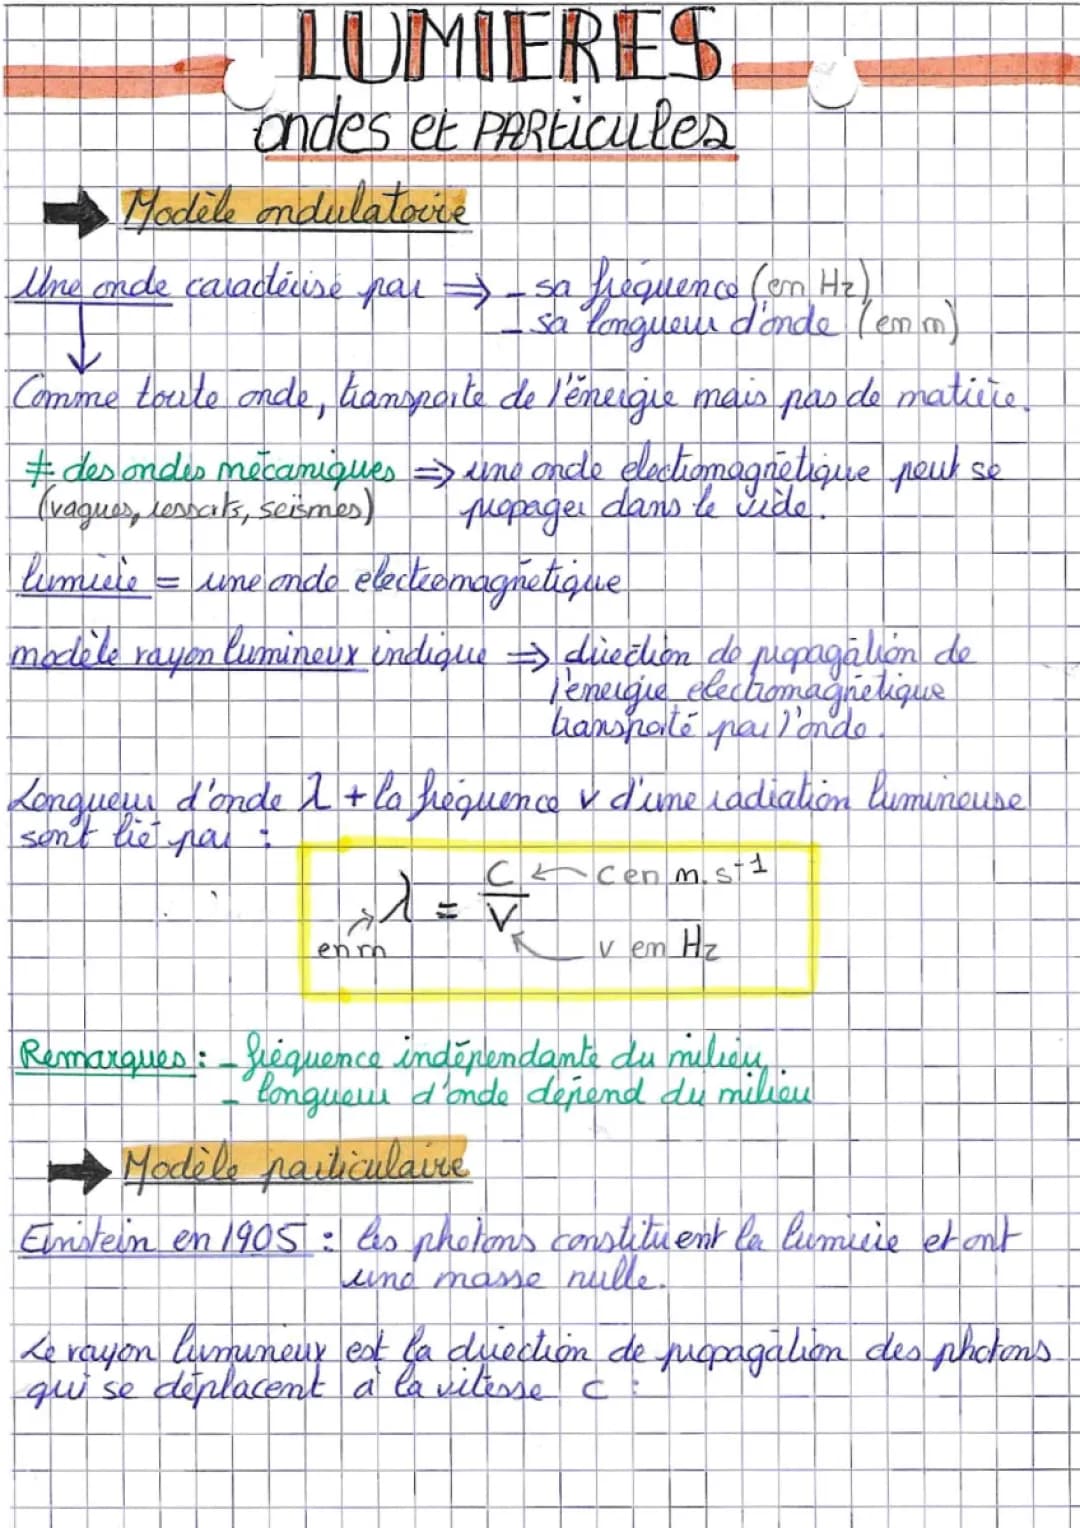 LUMIERES
ondes et PARticules
Modèle ondulatoire
Une onde caractérisé par ⇒ - sa fréquence (en Hz)
- sa longueur d'onde (en m)
Comme toute onde, transporte de l'énergie mais pas de matière.
≠ des ondes mécaniques ⇒ une onde électromagnétique peut se
(vagues, ressorts, seïsmes) propager dans le vide.
lumière = une onde electromagnétique
modèle rayon lumineux indique ⇒ direction de propagation de
l'énergie electromagnétique
transporté par l'onde.
Longueur d'onde λ + la fréquence v d'une radiation lumineuse
sont lié par :
λ = C/V
C en m.s-1
en m
v en Hz
Remarques : - fréquence indépendante du milieu
- longueur d'onde dépend du milieu
Modèle particulaire
Einstein en 1905 : les photons constituent la lumière et ont
une masse nulle.
Le rayon lumineux est la direction de propagation des photons
qui se déplacent à la vitesse c :